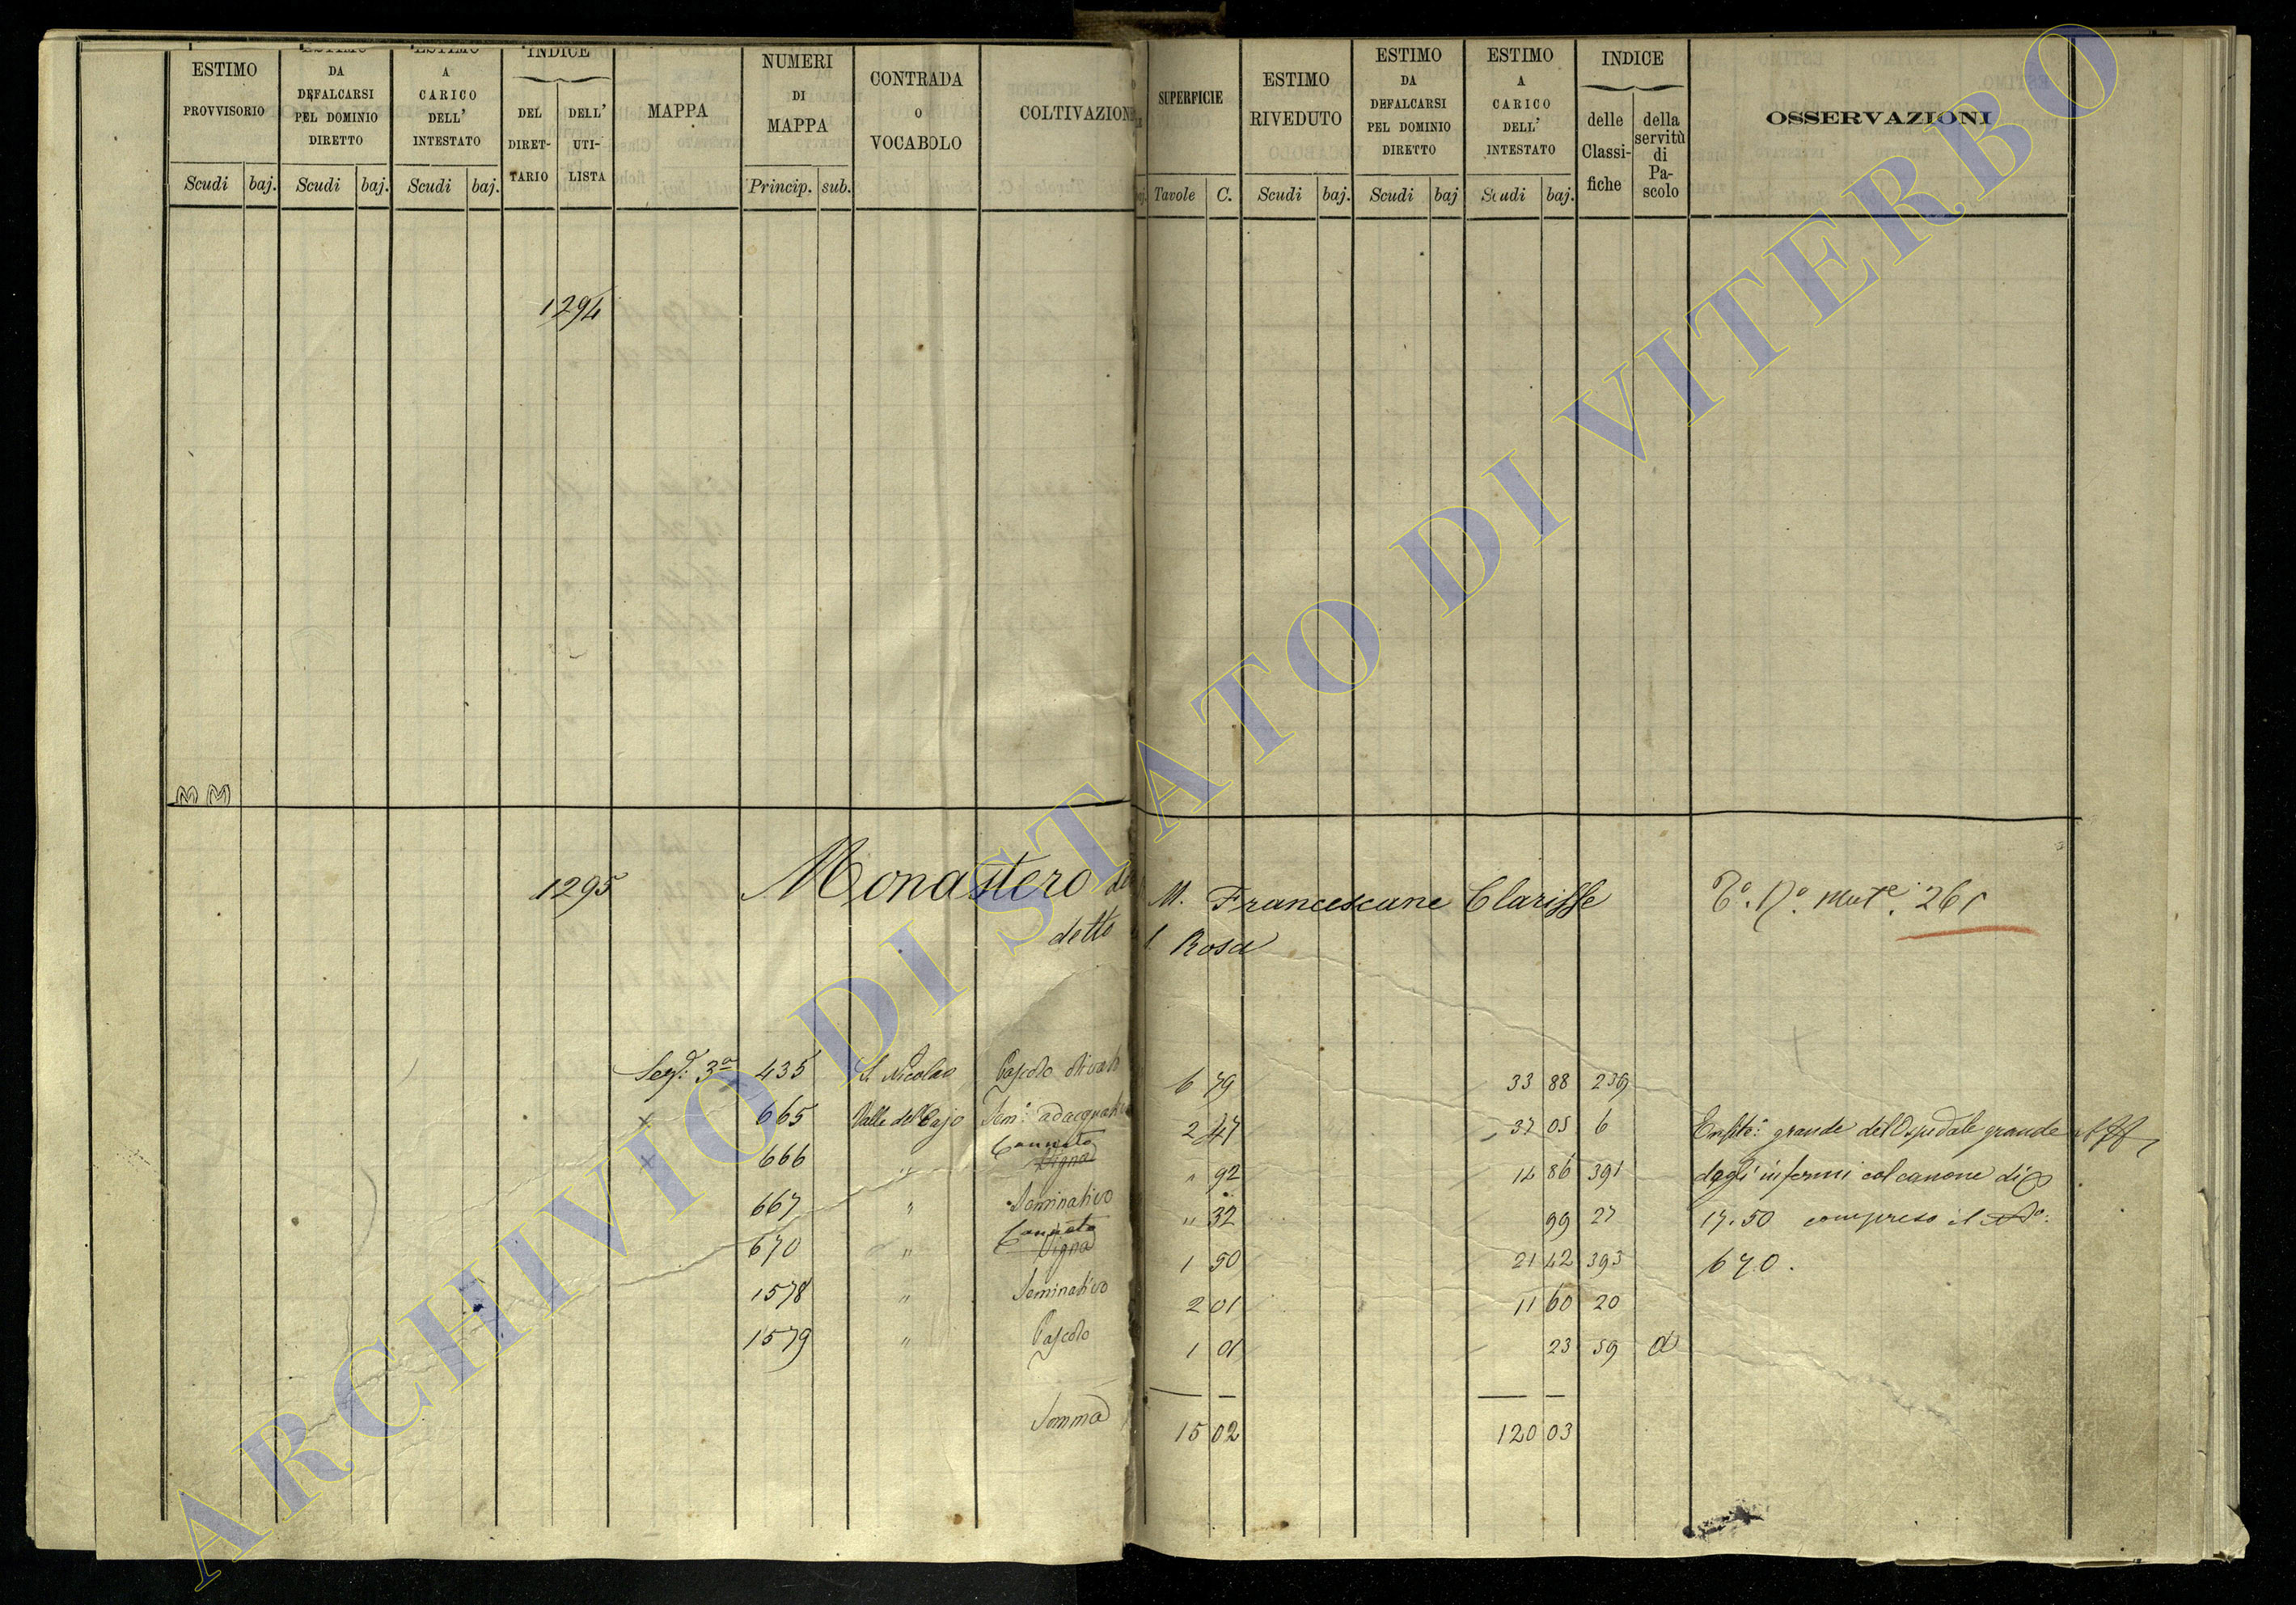 ESTIMO PROVVISORIO
ESTIMO DA DEFALCARSI PEL DOMINIO DIRETTO
ESTIMO A CARICO DELL' INTESTATO
INDICE
DEL DIRET-TARIO
DELL' UTI-LISTA
MAPPA
NUMERI DI MAPPA
CONTRADA O VOCABOLO
COLTIVAZION
SUPERFICIE
ESTIMO RIVEDUTO
ESTIMO DA DEFALCARSI PEL DOMINIO DIRETTO
ESTIMO A CARICO DELL' INTESTATO
INDICE
delle Classi-fiche
della servitù di Pa-scolo
OSSERVAZIONI
Scudi baj. Scudi baj. Scudi baj. Princip. sub. Tavole C. Scudi baj. Scudi baj Scudi baj.
1294
MM
1295 Monastero M. Francescane Clarisse 261
detto S. Rosa
Sez. 3a 435 S. Nicolao Pascolo olivato 6 79 33 88 239
x 665 Valle del Cajo Sem. adacquativo 2 47 37 05 6 Enfit. grande dell'Ospedale grande
x 666 " Canneto Vigna " 92 14 86 391 degli infermi col canone di
667 " Seminativo " 32 99 27 17.50 compreso il No:
670 " Canneto Vigna 1 50 21 42 393 670.
1578 " Seminativo 2 01 11 60 20
1579 " Pascolo 1 01 23 59 a
Somma 15 02 120 03
ARCHIVIO DI STATO DI VITERBO